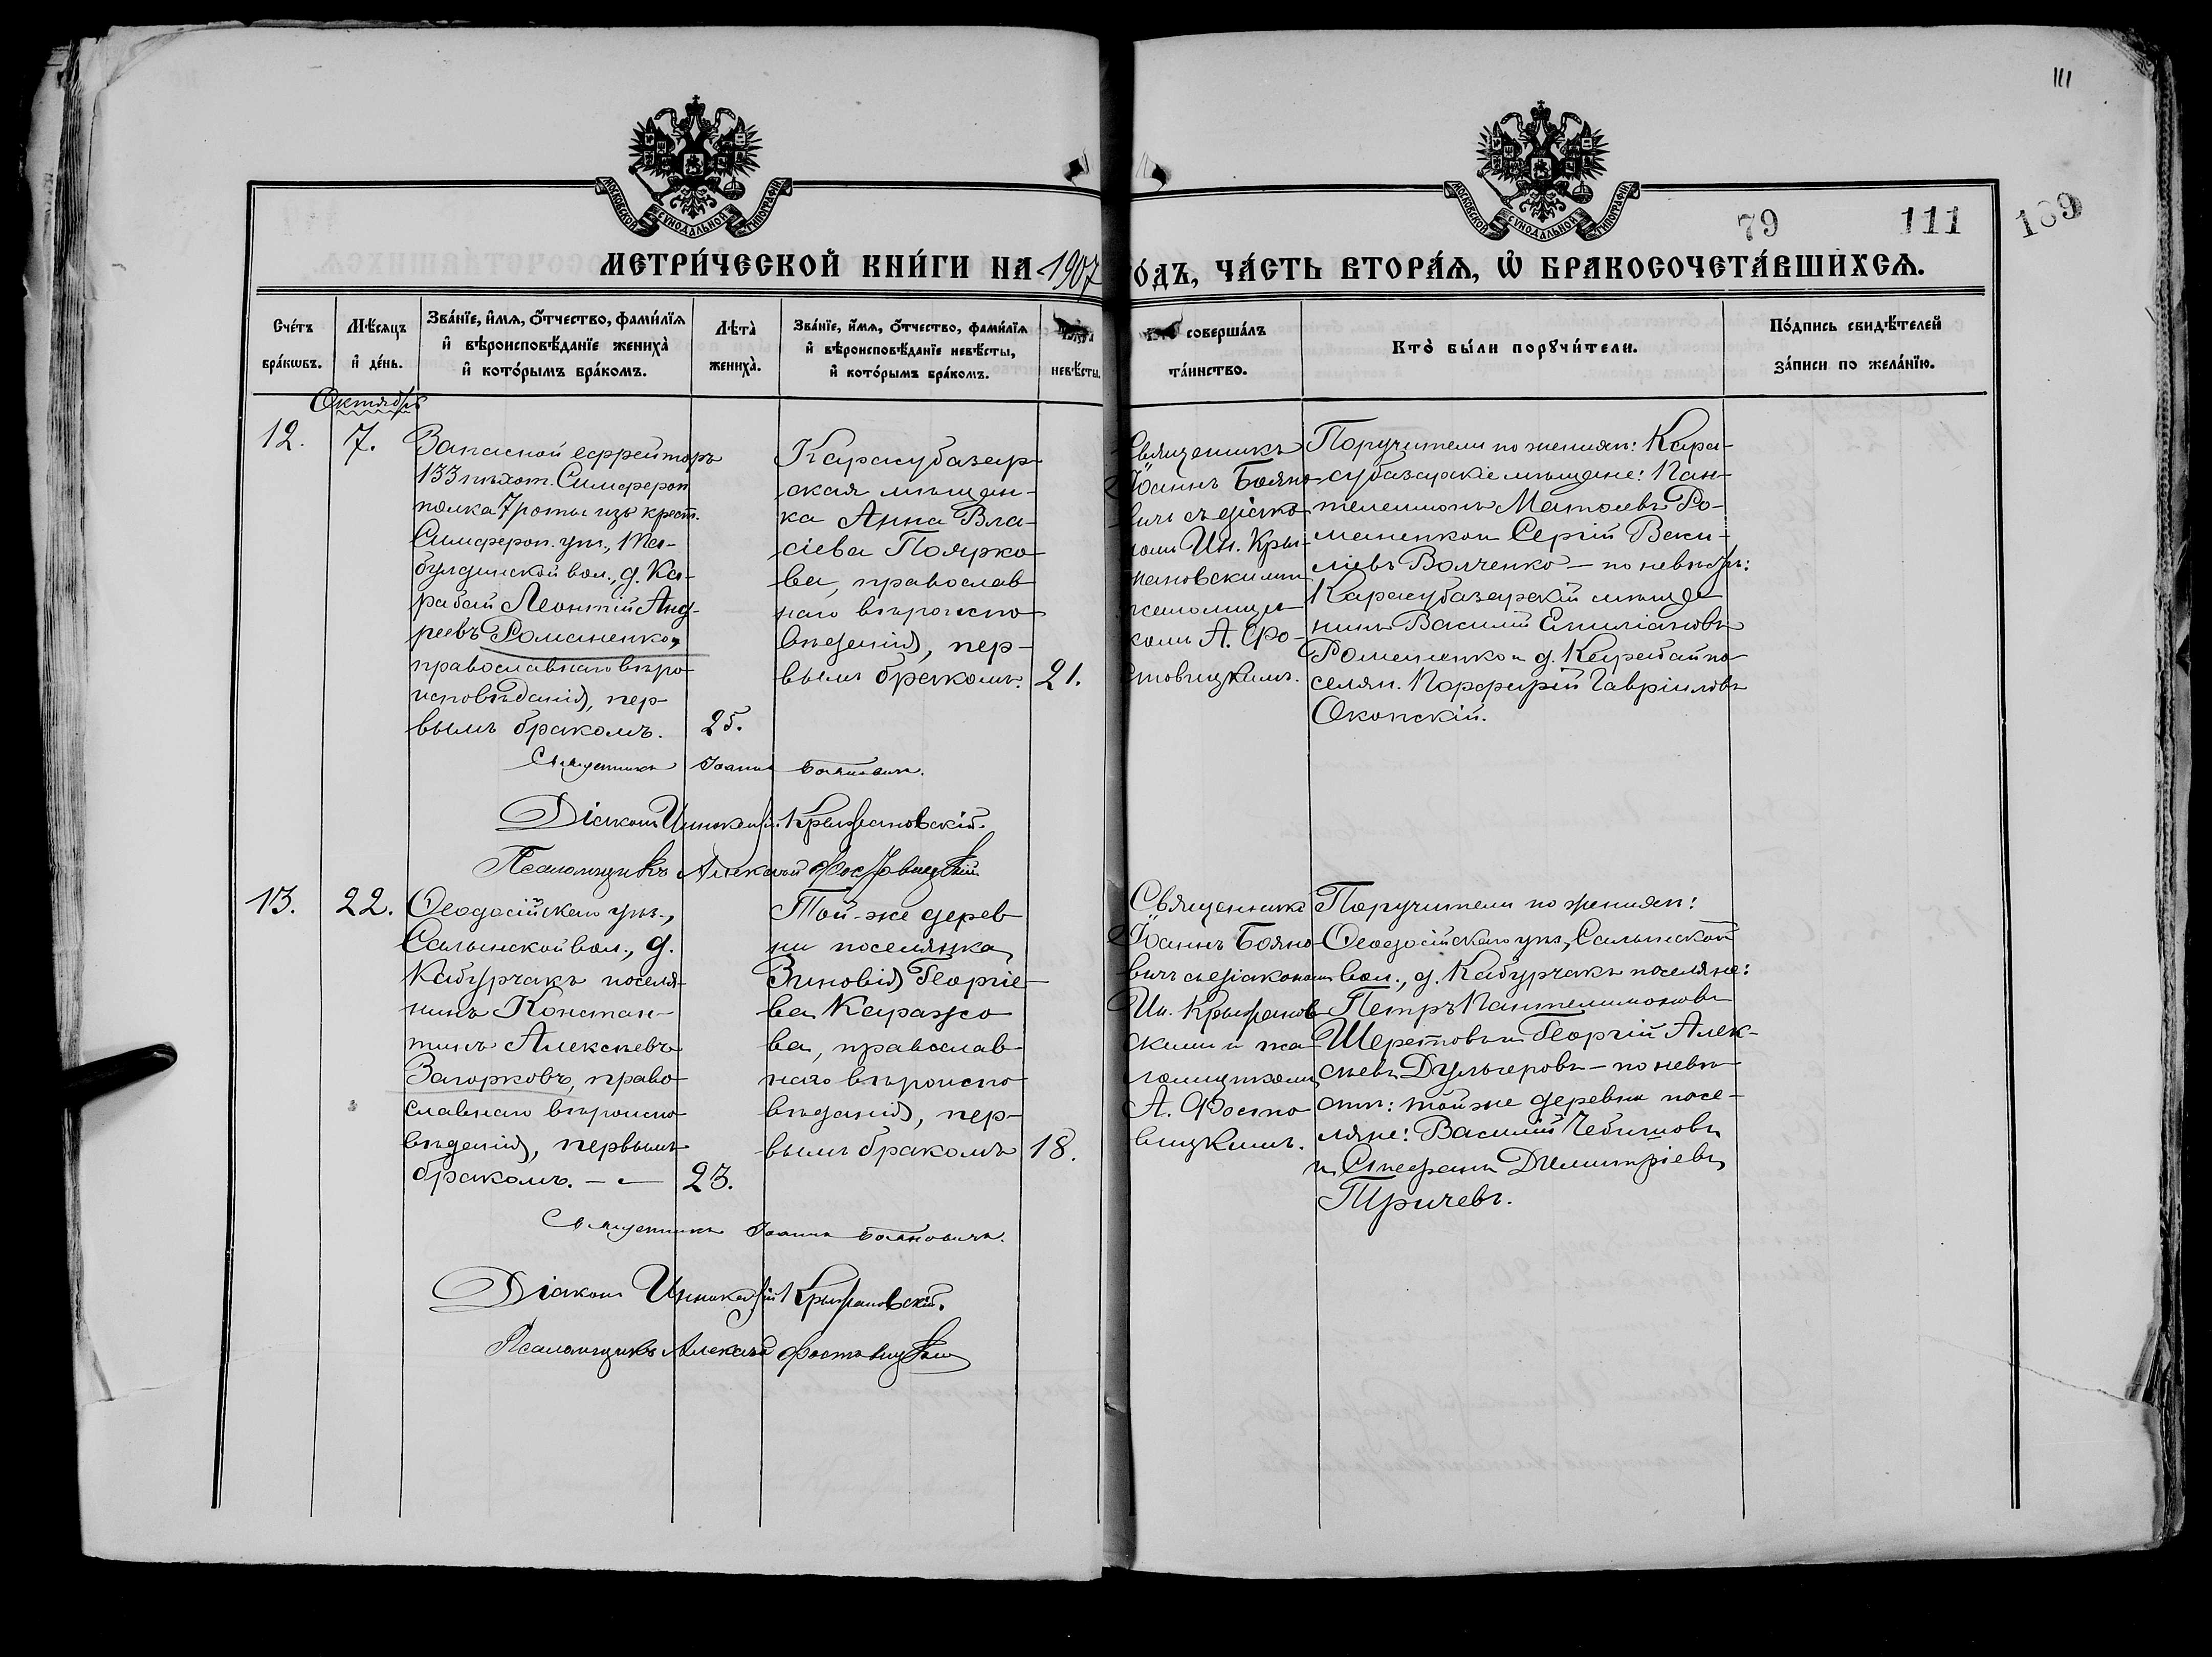 111
МОСКОВСКОЙ СѴНОДАЛЬНОЙ ТИПОГРАФІИ
МОСКОВСКОЙ СѴНОДАЛЬНОЙ ТИПОГРАФІИ
79 111 189
МЕТРИ́ЧЕСКОЙ КНИ́ГИ НА 1907
О́ДЪ, ЧА́СТЬ ВТОРА́Ѧ, Ѽ БРАКОСОЧЕТА́ВШИХСѦ.
Сче́тъ
бра́кѡвъ.
Мѣ́сѧцъ
и҆ де́нь.
Зва́нїе, и҆́мѧ, ѻ҆́тчество, фами́лїѧ
и҆ вѣроисповѣ́данїе жениха̀
и҆ кото́рымъ бра́комъ.
Лѣ́та̀
жениха̀.
Зва́нїе, и҆́мѧ, ѻ҆́тчество, фами́лїѧ
и҆ вѣроисповѣ́данїе невѣ́сты,
и҆ кото́рымъ бра́комъ.
невѣ́сты.
соверша́лъ
та́инство.
Кто̀ бы́ли порꙋчи́тели.
По́дпись свидѣ́телей
за́писи по жела́нїю.
Октябрь
12.
7.
Запасной ефрейторъ
133 пѣхот. Симфероп
полка 7 роты изъ крест.
Симфероп. уѣз., Та-
булдинской вол., д. Ка-
рабай Леонтій Анд-
реевъ Романенко,
православнаго вѣро-
исповѣданія, пер-
вымъ бракомъ.
25.
Карасубазар-
ская мѣщан-
ка Анна Вла-
сіева Поярко-
ва, православ-
наго вѣроиспо-
вѣданія, пер-
вымъ бракомъ.
21.
Священникъ
Іоаннъ Бояно-
вичъ съ діако-
номъ Ин. Кры-
жановскимъ и
псаломщи-
комъ А. Фо-
стовицкимъ.
Поручители по женихѣ: Кара-
субазарскіе мѣщане: Пан-
телеимонъ Матѳеевъ Ро-
маненко и Сергій Васи-
ліевъ Волченко — по невѣстѣ:
Карасубазарскій мѣща-
нинъ Василій Емиліановъ
Романенко и д. Карабай по-
селян. Порфирій Гавріиловъ
Окопскій.
Священникъ Іоаннъ Бояновичъ.
Діаконъ Иннокентій Крыжановскій.
Псаломщикъ Алексѣй Фостовицкій
13.
22.
Ѳеодосійскаго уѣз.,
Салынской вол., д.
Кабурчакъ поселя-
нинъ Констан-
тинъ Алексѣевъ
Загорковъ, право-
славнаго вѣроиспо-
вѣданія, первымъ
бракомъ. — —
23.
Той-же дерев-
ни поселянка
Зиновія Георгіе-
ва Каражо-
ва, православ-
наго вѣроиспо-
вѣданія, пер-
вымъ бракомъ
18.
Священникъ
Іоаннъ Бояно-
вичъ съ діакономъ
Ин. Крыжанов-
скимъ и пса-
ломщикомъ
А. Фосто-
вицкимъ.
Поручители по женихѣ:
Ѳеодосійскаго уѣз., Салынской
вол., д. Кабурчакъ поселяне:
Петръ Пантелимоновъ
Шеретовъ и Георгій Алек-
сѣевъ Дульгеровъ — по невѣ-
стѣ: той же деревни посе-
ляне: Василій Чебышовъ
и Стефанъ Димитріевъ
Тричевъ.
Священникъ Іоаннъ Бояновичъ.
Діаконъ Иннокентій Крыжановскій.
Псаломщикъ Алексѣй Фостовицкій